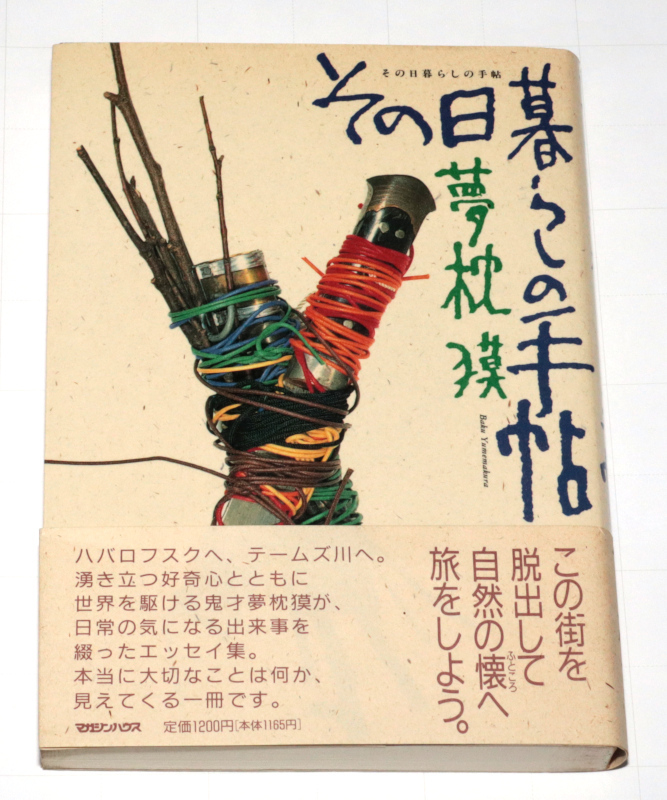 その日暮らしの手帖
その日暮らしの手帖
夢枕獏
Baku Yumemakura
この街を
脱出して
自然の懐へ
ふところ
旅をしよう。
ハバロフスクへ、テームズ川へ。
湧き立つ好奇心とともに
世界を駆ける鬼才夢枕獏が、
日常の気になる出来事を
綴ったエッセイ集。
本当に大切なことは何か、
見えてくる一冊です。
マガジンハウス 定価1200円[本体1165円]